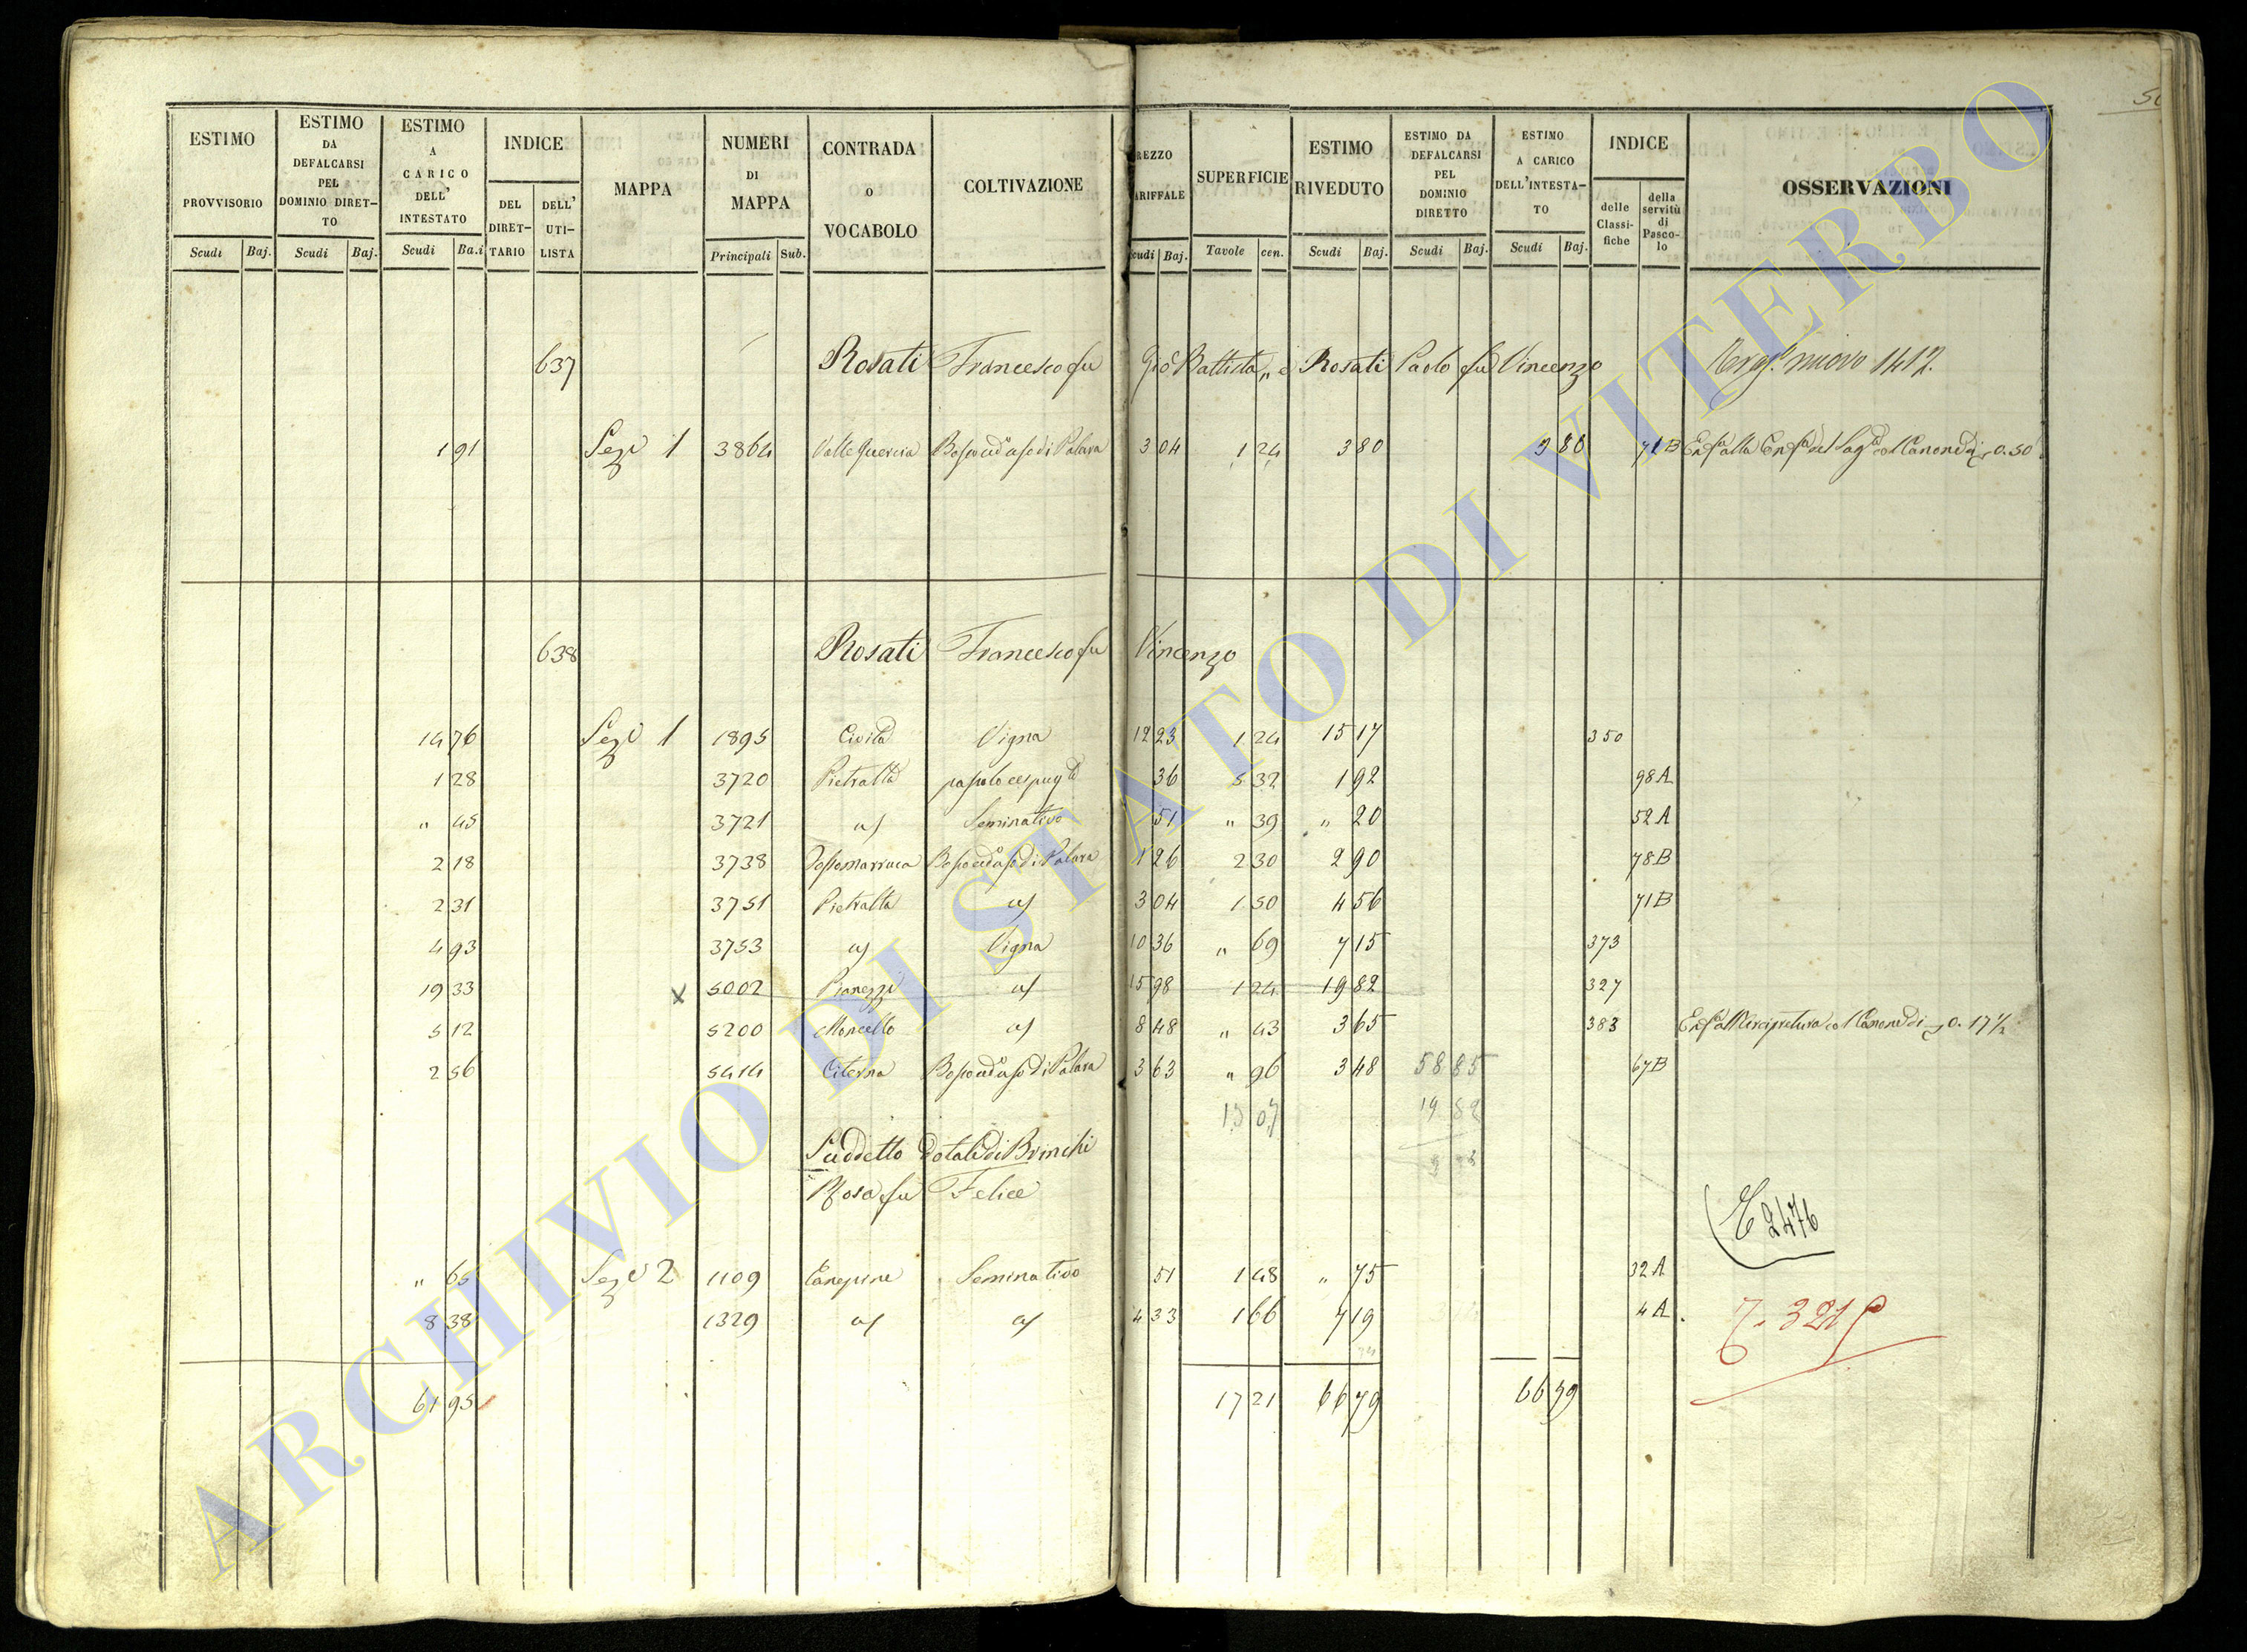 ESTIMO PROVVISORIO Scudi Baj.
ESTIMO DA DEFALCARSI PEL DOMINIO DIRETTO Scudi Baj.
ESTIMO A CARICO DELL' INTESTATO Scudi Ba.i
INDICE DEL DIRETTARIO DELL' UTILISTA
MAPPA
NUMERI DI MAPPA Principali Sub.
CONTRADA O VOCABOLO
COLTIVAZIONE
REZZO ARIFFALE cudi Baj.
SUPERFICIE Tavole cen.
ESTIMO RIVEDUTO Scudi Baj.
ESTIMO DA DEFALCARSI PEL DOMINIO DIRETTO Scudi Baj.
ESTIMO A CARICO DELL'INTESTATO Scudi Baj.
INDICE delle Classifiche della servitù di Pascolo
OSSERVAZIONI
637 Rosati Francesco fu Gio Battista, e Rosati Paolo fu Vincenzo nuovo 1417.
1 91 Sez 1 3864 Valle Quercia Bosco ced uso di Palara 3 04 1 24 3 80 3 80 71 B 0.50
638 Rosati Francesco fu Vincenzo
14 76 Sez 1 1895 Civita Vigna 12 23 1 24 15 17 350
1 28 3720 Pietralta 36 5 32 1 92 98 A
" 45 3721 Seminativo 51 " 39 " 20 52 A
2 18 3738 Bosco ced uso di Palara 1 26 2 30 2 90 78 B
2 31 3751 Pietralta 3 04 1 50 4 56 71 B
4 93 3753 Vigna 10 36 " 69 7 15 373
19 33 x 5002 Pianezze 15 98 1 24 19 82 327
5 12 5200 Moncello 8 48 " 43 3 65 383 0. 17 ½
2 56 5414 Citerna Bosco ced uso di Palara 3 63 " 96 3 48 58 85 67 B
19 82
Suddetto dotale di Brinchi
Rosa fu Felice
E 2476
" 65 Sez 2 1109 Canepine Seminativo 51 1 48 " 75 32 A
8 38 1329 4 33 1 66 7 19 4 A
61 95 17 21 66 79 66 79
ARCHIVIO DI STATO DI VITERBO